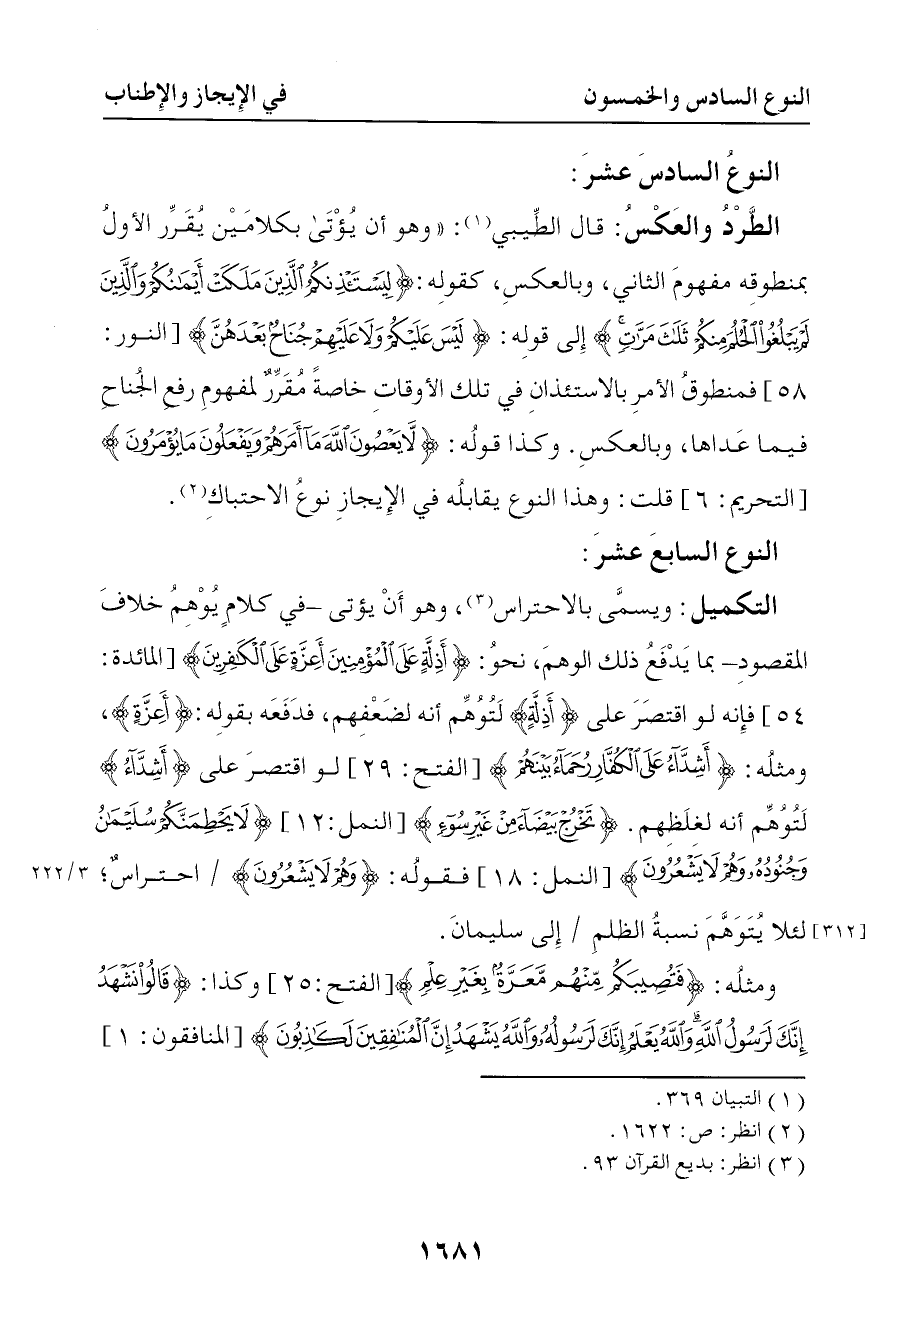 النوع السادس والخمسون في الإيجاز والإطناب
النوعُ السادسَ عشرَ :
الطَّرْدُ والعَكْسُ : قال الطِّيبي(١) : « وهو أن يُؤْتَىٰ بكلامَيْن يُقَرِّر الأولُ
بمنطوقِه مفهومَ الثاني ، وبالعكسِ ، كقوله : ﴿ لِيَسْتَـْٔذِنكُمُ ٱلَّذِينَ مَلَكَتْ أَيْمَٰنُكُمْ وَٱلَّذِينَ
لَمْ يَبْلُغُوا۟ ٱلْحُلُمَ مِنكُمْ ثَلَٰثَ مَرَّٰتٍۢ ﴾ إلى قوله : ﴿ لَيْسَ عَلَيْكُمْ وَلَا عَلَيْهِمْ جُنَاحٌۢ بَعْدَهُنَّ ﴾ [ النور :
٥٨ ] فمنطوقُ الأمرِ بالاستئذان في تلك الأوقاتِ خاصةً مُقَرِّرٌ لمفهومِ رفعِ الجُناحِ
فيما عَداها ، وبالعكسِ . وكذا قولُه : ﴿ لَّا يَعْصُونَ ٱللَّهَ مَآ أَمَرَهُمْ وَيَفْعَلُونَ مَا يُؤْمَرُونَ ﴾
[ التحريم : ٦ ] قلت : وهذا النوع يقابلُه في الإيجازِ نوعُ الاحتباك(٢) .
النوع السابعَ عشرَ :
التكميل : ويسمَّى بالاحتراس(٣) ، وهو أنْ يؤتى –في كلامٍ يُوْهِمُ خلافَ
المقصودِ– بما يَدْفَعُ ذلك الوهمَ ، نحوُ : ﴿ أَذِلَّةٍ عَلَى ٱلْمُؤْمِنِينَ أَعِزَّةٍ عَلَى ٱلْكَٰفِرِينَ ﴾ [ المائدة :
٥٤ ] فإنه لو اقتصرَ على ﴿ أَذِلَّةٍ ﴾ لَتُوُهِّم أنه لضَعْفِهم ، فدفَعَه بقوله : ﴿ أَعِزَّةٍ ﴾ ،
ومثلُه : ﴿ أَشِدَّآءُ عَلَى ٱلْكُفَّارِ رُحَمَآءُ بَيْنَهُمْ ﴾ [ الفتح : ٢٩ ] لو اقتصرَ على ﴿ أَشِدَّآءُ ﴾
لَتُوُهِّم أنه لغلَظِهم . ﴿ تَخْرُجْ بَيْضَآءَ مِنْ غَيْرِ سُوٓءٍ ﴾ [ النمل : ١٢ ] ﴿ لَا يَحْطِمَنَّكُمْ سُلَيْمَٰنُ
وَجُنُودُهُۥ وَهُمْ لَا يَشْعُرُونَ ﴾ [ النمل : ١٨ ] فقولُه : ﴿ وَهُمْ لَا يَشْعُرُونَ ﴾ / احتراسٌ ؛ ٢٢٢/٣
[٣١٢] لئلا يُتَوَهَّمَ نسبةُ الظلمِ / إلى سليمانَ .
ومثلُه : ﴿ فَتُصِيبَكُم مِّنْهُم مَّعَرَّةٌۢ بِغَيْرِ عِلْمٍ ﴾ [ الفتح : ٢٥ ] وكذا : ﴿ قَالُوا۟ نَشْهَدُ
إِنَّكَ لَرَسُولُ ٱللَّهِ ۗ وَٱللَّهُ يَعْلَمُ إِنَّكَ لَرَسُولُهُۥ وَٱللَّهُ يَشْهَدُ إِنَّ ٱلْمُنَٰفِقِينَ لَكَٰذِبُونَ ﴾ [ المنافقون : ١ ]
( ١ ) التبيان ٣٦٩ .
( ٢ ) انظر : ص : ١٦٢٢ .
( ٣ ) انظر : بديع القرآن ٩٣ .
١٦٨١